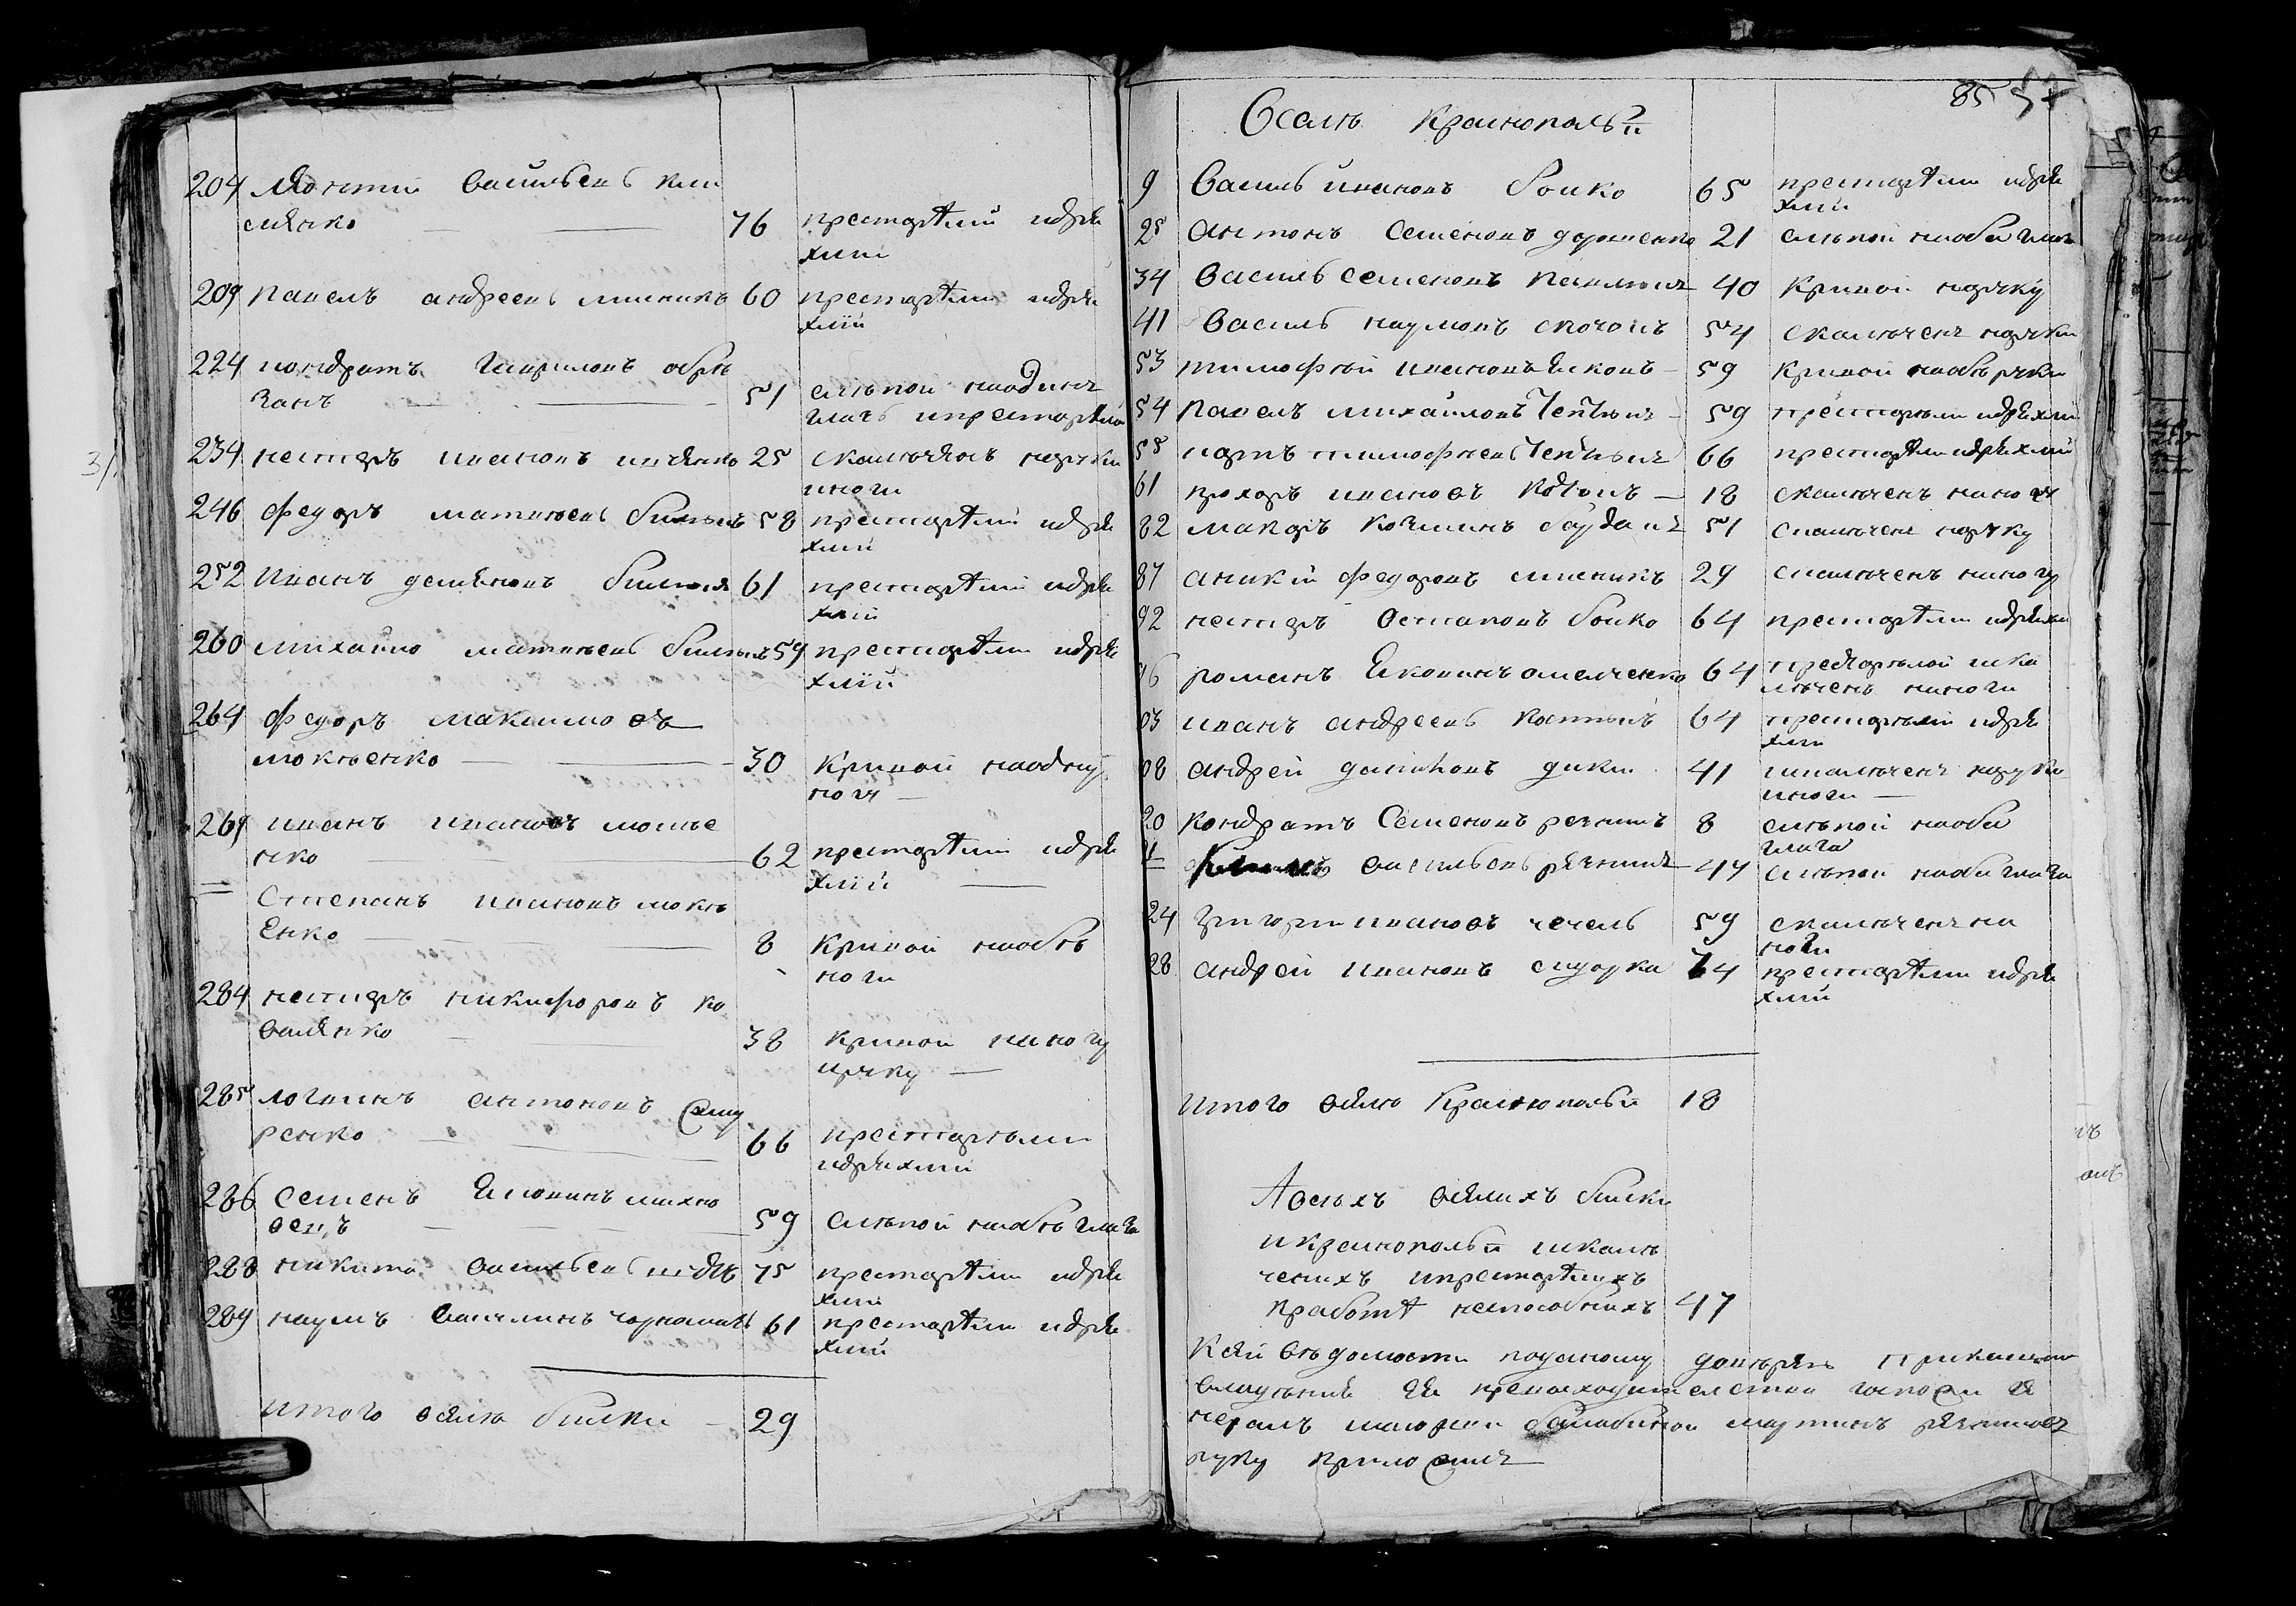 204 Леонтий васильевъ кли
менко 76 престарѣлий идря
хлий
209 павелъ андреевъ мисникъ 60 престарѣли идря
хлий
224 кондратъ гавриловъ обрѣ
занъ 51 слѣпой наодинъ
глазъ ипрестарѣлой
234 нестеръ ивановъ 25 скалѣченъ наруки
иноги
246 федоръ матвѣевъ 58 престарѣлий идря
хлий
252 Иванъ демяновъ 61 престарѣлий идря
хлий
260 михайло матвѣевъ 59 престарѣли идря
хлий
264 федоръ максимовъ
мокѣенко 30 кривой наодну
ногу
269 иванъ ивановъ мокѣе
нко 62 престарѣли идря
хлий
= Степанъ ивановъ мокѣ
енко 8 кривой наобѣ
ноги
284 нестеръ никифоровъ ко
валенко 38 кривой наногу
ируку
285 логвинъ антоновъ
ренко 66 престарѣли
идряхлий
286 семенъ михно
вецъ 59 слѣпой наобѣ глаза
288 никита васильевъ 75 престарѣли идря
хлий
289 наумъ 61 престарѣли идря
хлий
итого вселѣ билки 29
85 57
Вселѣ Краснопольи
9 василь ивановъ бойко 65 престарѣли идря
хлий
25 антонъ семеновъ дорошенко 21 слѣпой наоба глаза
34 василь семеновъ 40 кривой наруку
41 василь наумовъ 54 скалѣченъ наруки
53 тимофѣй ивановъ 59 кривой наобѣ руки
54 павелъ михайловъ 59 престарѣли идряхлий
55 тимофѣевъ 66 престарѣли идряхлий
61 прохоръ ивановъ 18 скалѣченъ наногу
82 макаръ козминъ 51 скалѣченъ наруку
87 аникій федоровъ мисникъ 29 скалѣченъ наногу
92 нестеръ остаповъ бойко 64 престарѣли идряхли
96 романъ яковинъ омелченко 64 престарѣлой иска
лѣченъ наноги
03 иванъ андреевъ 64 престарѣлий идря
хли
08 андрей даниловъ дикий 41 скалѣченъ наруки
иноги
20 кондратъ семеновъ резникъ 8 слѣпой наоба
глаза
= васильевъ резникъ 47 слѣпой наоба глаза
24 григори ивановъ чечель 59 скалѣченъ на
ноги
28 андрей ивановъ сидорка 74 престарѣли идря
хлий
итого вселѣ Краснопольи 18
Авсѣхъ вселахъ билки
икраснопольи искалѣ
ченихъ ипрестарѣлихъ
кработѣ неспособнихъ 47
Ксей вѣдомости поданому довѣрею прикащикъ
владѣния ея превосходителства госпожи ге
нералъ маиорши балабиной мартинъ резниковъ
руку приложилъ